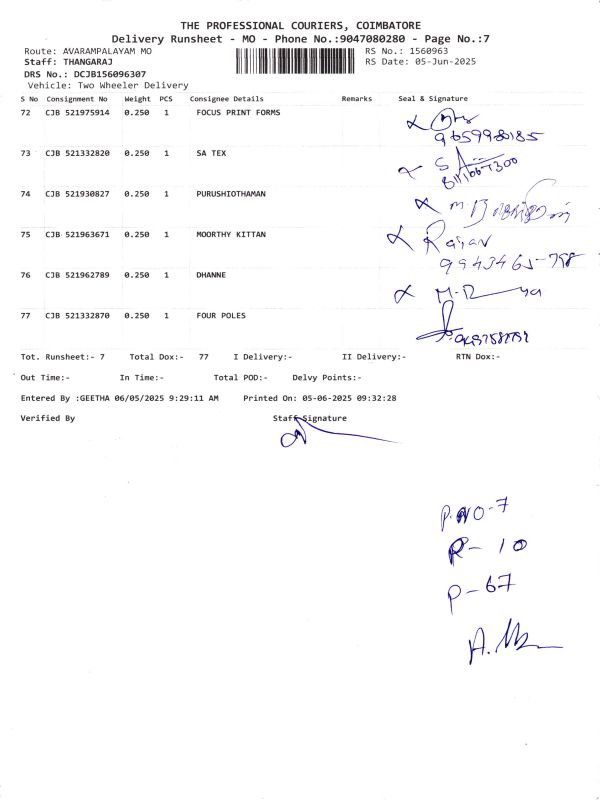 THE PROFESSIONAL COURIERS, COIMBATORE
Delivery Runsheet - MO - Phone No.:9047080280 - Page No.:7
Route: AVARAMPALAYAM MO RS No.: 1560963
Staff: THANGARAJ RS Date: 05-Jun-2025
DRS No.: DCJB156096307
Vehicle: Two Wheeler Delivery
S No Consignment No Weight PCS Consignee Details Remarks Seal & Signature
72 CJB 521975914 0.250 1 FOCUS PRINT FORMS
9659980185
73 CJB 521332820 0.250 1 SA TEX
74 CJB 521930827 0.250 1 PURUSHIOTHAMAN
75 CJB 521963671 0.250 1 MOORTHY KITTAN Rajan
9943465-798
76 CJB 521962789 0.250 1 DHANNE
77 CJB 521332870 0.250 1 FOUR POLES
Tot. Runsheet:- 7 Total Dox:- 77 I Delivery:- II Delivery:- RTN Dox:-
Out Time:- In Time:- Total POD:- Delvy Points:-
Entered By :GEETHA 06/05/2025 9:29:11 AM Printed On: 05-06-2025 09:32:28
Verified By Staff Signature
P.NO-7
R-10
P-67